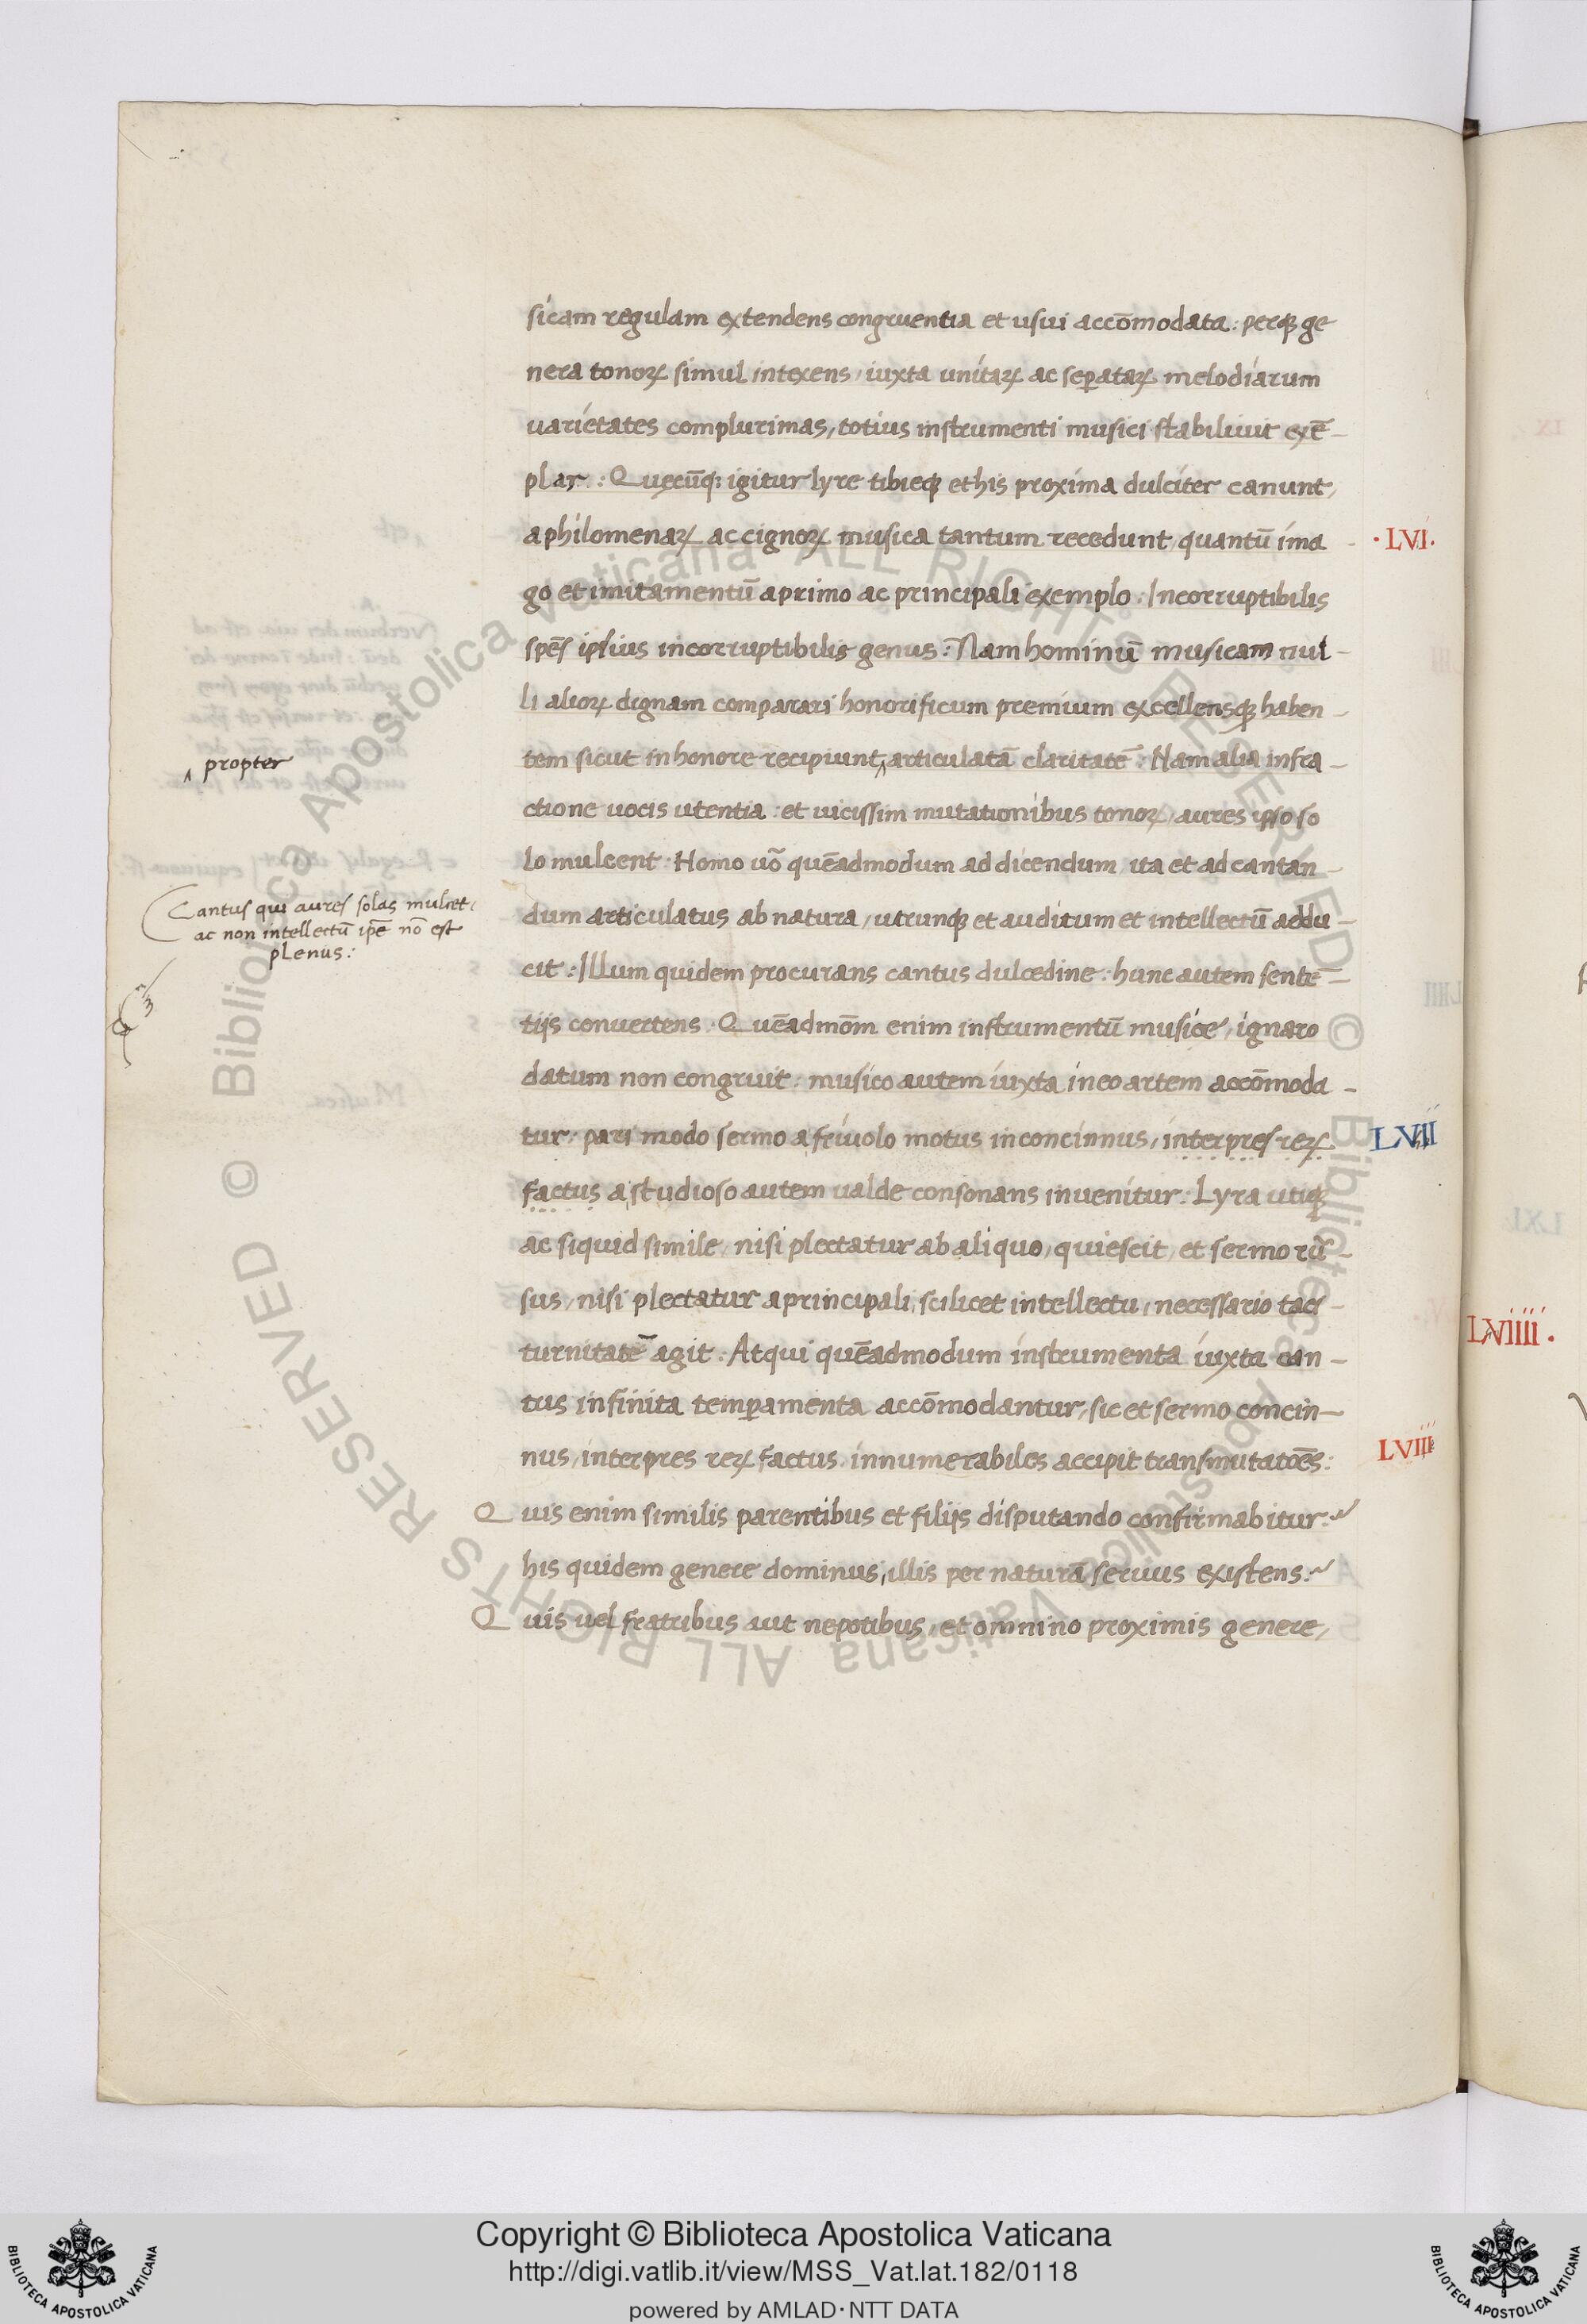 sicam regulam extendens congruentia et usui accōmodata: perqꝫ ge
nera tonoꝝ simul intexens, iuxta unitaꝝ ac seꝑataꝝ melodiarum
uarietates complurimas, totius instrumenti musici stabiliuit exē-
plar: Quecūqꝫ igitur lyre tibieqꝫ et his proxima dulciter canunt,
a philomenaꝝ ac cignoꝝ musica tantum recedunt, quantū ima-
·LVI·
go et imitamentū a primo ac principali exemplo. Incorruptibilis
spēs ipsius incorruptibilis genus: Nam hominū musicam nul-
li alioꝝ dignam comparari honorificum premium excellensqꝫ haben-
tem sicut in honore recipiunt ‸ articulatā claritatē: Nam alia infra-
‸ propter
ctione uocis utentia: et uicissim mutationibus tonoꝝ, aures ipso so
lo mulcent. Homo uō quēadmodum ad dicendum ita et ad cantan-
Cantus qui aures solas mulcet
ac non intellectū ip̄e nō est
plenus:
dum articulatus ab natura, utrunqꝫ et auditum et intellectū addu-
cit: Illum quidem procurans cantus dulcedine: hunc autem sentē-
tijs convertens. Quēadmōm enim instrumentū musice, ignaro
datum non congruit: musico autem iuxta in eo artem accōmoda-
tur: pari modo sermo a friuolo motus inconcinnus, interpres reꝝ
LVII
factus a studioso autem ualde consonans inuenitur. Lyra utiqꝫ
ac siquid simile, nisi plectatur ab aliquo, quiescit, et sermo rū-
sus, nisi plectatur a principali, scilicet intellectu, necessario taci-
turnitatē agit: Atqui quēadmodum instrumenta iuxta can-
tus infinita temꝑamenta accōmodantur, sic et sermo concin-
nus, interpres reꝝ factus innumerabiles accipit transmutatōes:
LVIII
Quis enim similis parentibus et filijs disputando confirmabitur:
his quidem genere dominus, illis per naturā seruus existens:
Quis uel fratribus aut nepotibus, et omnino proximis genere,
LVIIII·
Copyright © Biblioteca Apostolica Vaticana
http://digi.vatlib.it/view/MSS_Vat.lat.182/0118
powered by AMLAD·NTT DATA
BIBLIOTECA APOSTOLICA VATICANA
BIBLIOTECA APOSTOLICA VATICANA
© Biblioteca Apostolica Vaticana ALL RIGHTS RESERVED © Biblioteca Apostolica Vaticana ALL RIGHTS RESERVED